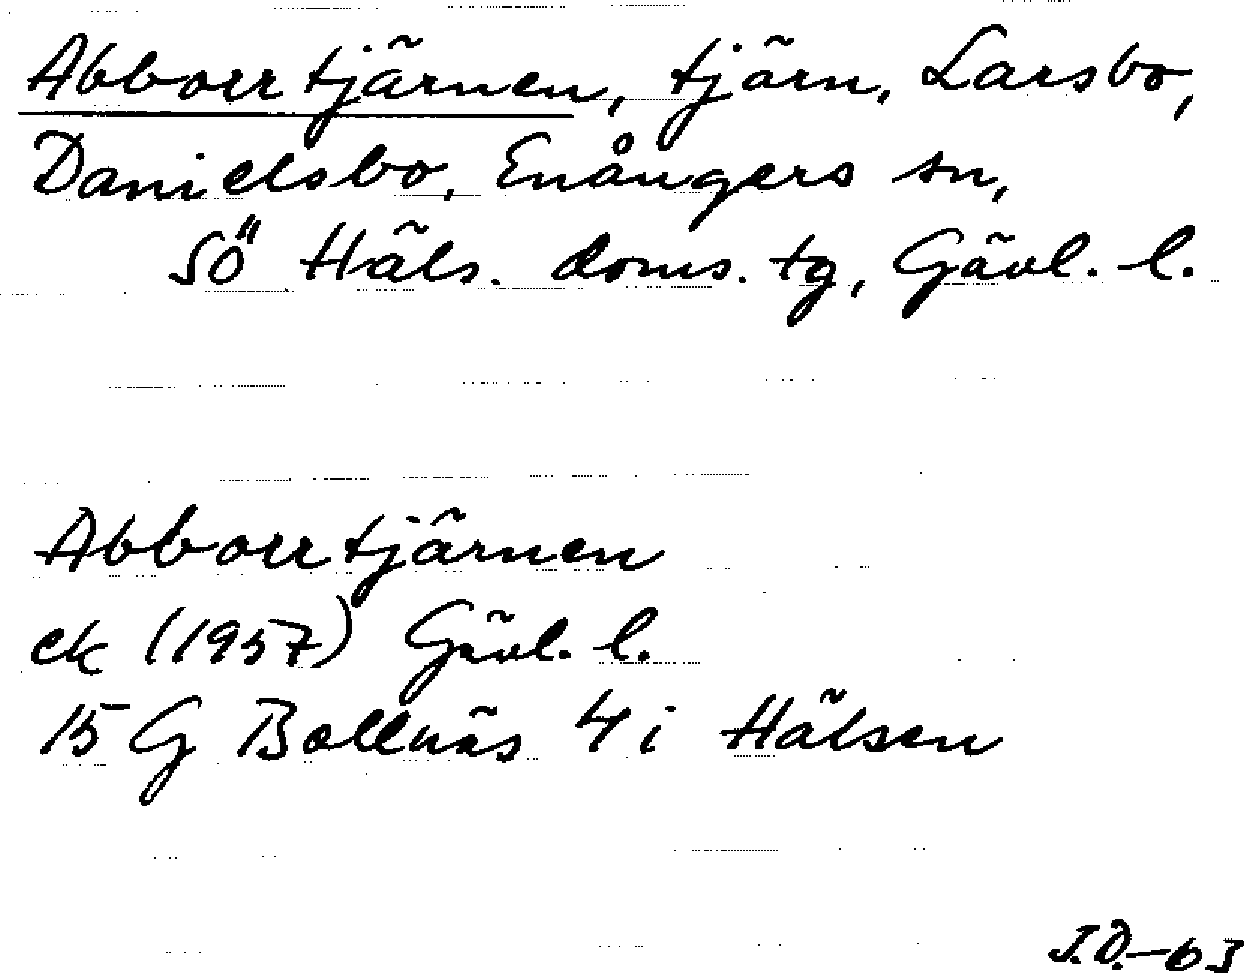 Abborrtjärnen, tjärn, Larsbo,
Danielsbo, Enångers sn,
Sö Häls. doms. tg, Gävl. l.
Abborrtjärnen
ek (1957) Gävl. l.
15 G Bollnäs 4 i Hälsen
J.D.-63